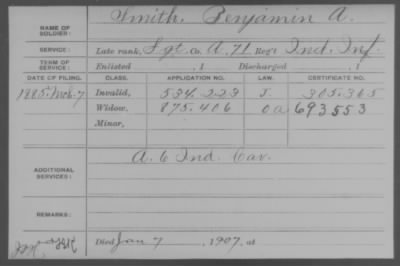 NAME OF SOLDIER: Smith, Benjamin A.
SERVICE: Late rank, Sgt Co. A, 71 Reg't Ind. Inf.
TERM OF SERVICE: Enlisted , 1 Discharged , 1
DATE OF FILING. CLASS. APPLICATION NO. LAW. CERTIFICATE NO.
1885. Mch. 7 Invalid, 534.223 J. 305.365
Widow, 875.406 O a 693553
Minor,
ADDITIONAL SERVICES: A. 6 Ind. Cav.
REMARKS:
Died Jan 7, 1907, at